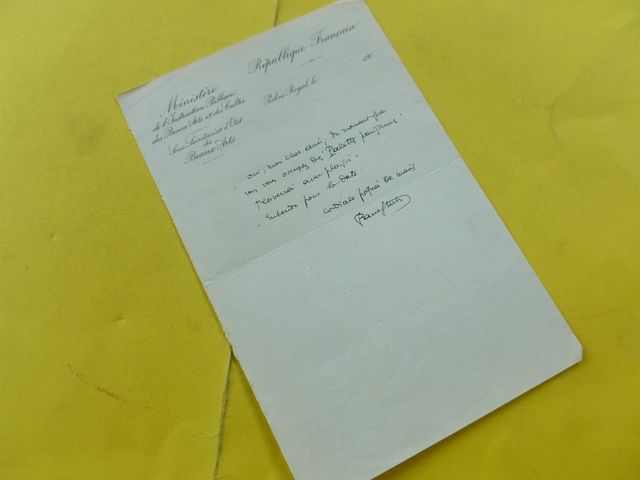 République Française
Ministère
de l'Instruction Publique
des Beaux-Arts et des Cultes
Sous-Secrétariat d'Etat
des
Beaux-Arts
Palais Royal, le 190
- oui, mon cher ami, du moment que
vous vous occupez de Palette
avec plaisir -
- Entendu pour la date
cordiale poignée de mains